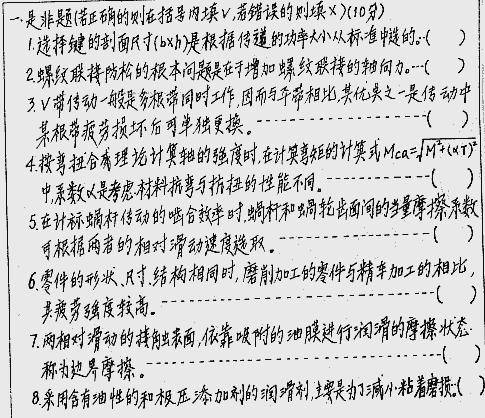 一.是非题(若正确的则在括号内填∨,若错误的则填×)(10分)
1.选择键的剖面尺寸(b×h)是根据传递的功率大小从标准中选的。--( )
2.螺纹联接防松的根本问题是在于增加螺纹联接的轴向力。---( )
3.V带传动一般是多根带同时工作,因而与平带相比,其优点之一是传动中
某根带疲劳损坏后可单独更换。----------------( )
4.按弯扭合成理论计算轴的强度时,在计算弯矩的计算式Mca=√M²+(αT)²
中,系数α是考虑材料抗弯与抗扭的性能不同。----------( )
5.在计标蜗杆传动的啮合效率时,蜗杆和蜗轮齿面间的当量摩擦系数
可根据两者的相对滑动速度选取。--------------( )
6.零件的形状、尺寸、结构相同时,磨削加工的零件与精车加工的相比,
其疲劳强度较高。------------------------( )
7.两相对滑动的接触表面,依靠吸附的油膜进行润滑的摩擦状态
称为边界摩擦。-------------------------( )
8.采用含有油性的和极压添加剂的润滑剂,主要是为了减小粘着磨损.( )